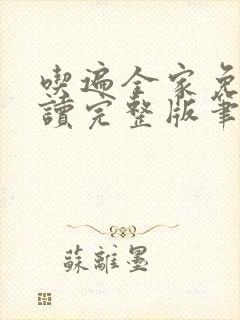 喫遍全家免
讀完整版筆
蘇離墨